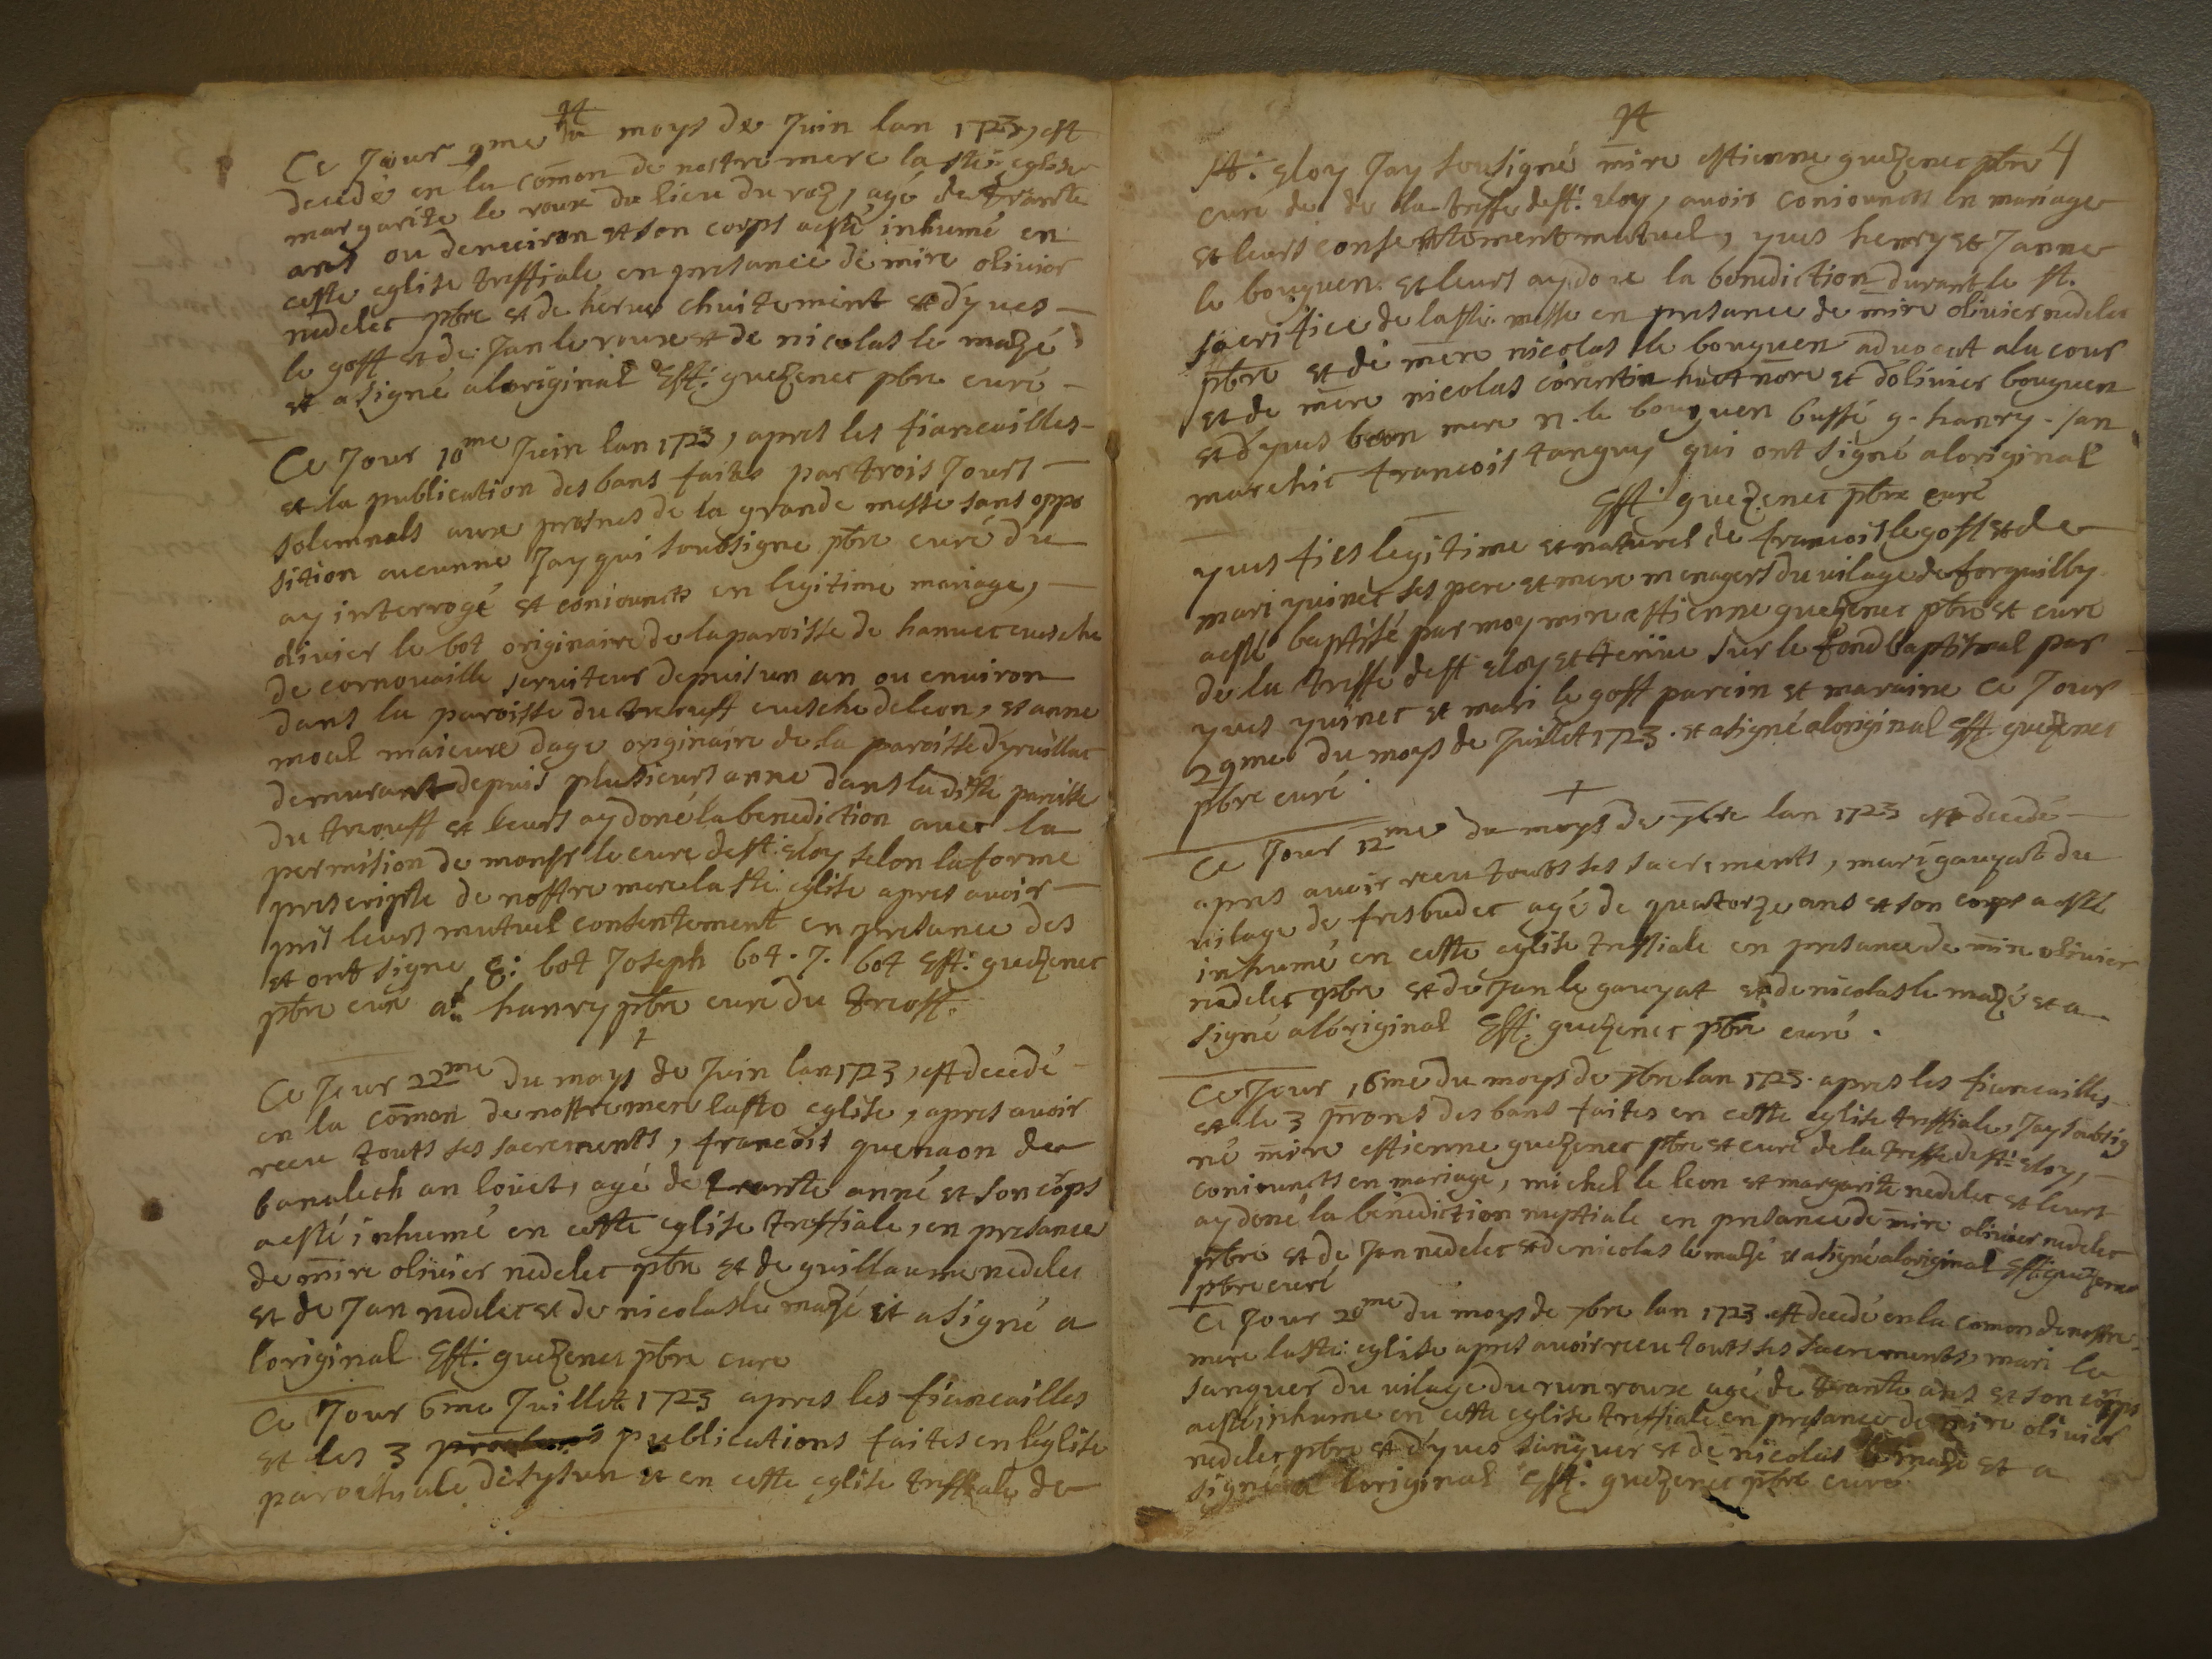 Ce Jour 9me du moys de Juin lan 1723, est
decede en la comon de nostre mere la ste eglise
margarite le roux du lieu du roz, agé de trante
ans ou denuiron et son corps aesté inhumé en
ceste eglise treffiale en presance de mire olivier
nedelec pbre et de herve chuitement et dyues
le goff et de Jan le roux et de nicolas le mazé
et a signé aloriginal Est: guezenec pbre curé
Ce Jour 10me Juin lan 1723, apres les fiancailles
et la publication des bans faites par trois Jours
solemnels aux prosnes de la grande messe sans oppo
sition aucunne Jay qui soubsigne pbre curé du
ay interrogé et coniouncts en legitime mariage,
olivier le bot originaire de la paroisse de hanuec euesche
de cornouaille seruiteur depuis un an ou enuiron
dans la paroisse du treouff euesche deleon, et anne
moal maieure dage originaire de la paroisse dyruillac
demurant depuis plusieurs anne dans la ditte paroisse
du treouff et leurs ay doné la benediction avec la
permision de monsr le cure de st. eloy selon la forme
prescripte de nostre mere la ste eglise apres avoir
pris leurs mutuel consentement en presance des
et ont signe g: bot Joseph bot. J. bot Est: guezenec
pbre curé a: hanry pbre cure du treoff.
+
Ce Jour 22me du moys de Juin lan 1723, est decedé
en la comon de nostre mere la ste eglise, apres avoir
receu touts ses sacrements, francois quenaon de
banalech an louet, agé de trante anné et son corps
aesté inhumé en ceste eglise treffiale, en presance
de mire olivier nedelec pbre et de guillaume nedelec
et de Jan nedelec et de nicolas le mazé et a signé a
loriginal Est: guezenec pbre cure
Ce Jour 6me Juillet 1723 apres les fiancailles
et les 3 publications faites en leglise
paroichiale desysun et en ceste eglise treffiale de
4
st: eloy Jay sousigné mire estienne guezenec pbre
curé de de la treffe de st: eloy, avoir coniouncts en mariage
et leurs consentement mutuel, yves henry et Janne
le bouguen. et leurs ay done la benediction durant le st.
sacrifice de la ste. messe en presance de mire olivier nedelec
pbre et de mere nicolas le bouguen advocat ala cour
et de mere nicolas corentin huet nore et dolivier bouguen
et dyves bean mere n. le bouguen bussé g. hanry. Jan
marchic francois tanguy qui ont signé aloriginal
Est: guezenec pbre curé
yves fils legitime et naturel de francois le goff et de
mari quinec ses pere et mere menagers du vilage de forquilly
aesté baptisé par moy mire estienne guezenec pbre et curé
de la treffe de st eloy et tenüe sur le fond baptismal par
yves quinec et mari le goff parein et maraine ce Jour
29me du moys de Juillet 1723. et a signé aloriginal Est: guezenec
pbre curé
+
Ce Jour 12me du moys de 7bre lan 1723 est decedé
apres avoir receu touts ses sacrements, mari gauyat du
vilage de fresbudec agé de quatorze ans et son corps aesté
inhumé en ceste eglise treffiale en presance de mire olivier
nedelec pbre et de Jan le gauyat et de nicolas le mazé et a
signé aloriginal Est: guezenec pbre curé.
Ce Jour 16me du moys de 7bre lan 1723. apres les fiancailles
et le 3 prons des bans faites en ceste eglise treffiale, Jay soubsig
né mire estienne guezenec pbre et curé de la treffe de st: eloy,
coniouncts en mariage, michel le leon et margarite nedelec et leurs
ay doné la bénediction nuptiale en presance de mire olivier nedelec
pbre et de Jan nedelec et de nicolas le mazé et a signé aloriginal Est: guezenec
pbre curé
Ce Jour 20me du moys de 7bre lan 1723 est decedé en la comon de nostre
mere la ste: eglise apres avoir receu touts ses sacrements, mari le
sanquer du vilage du run roux agé de trante ans et son corps
aesté inhume en ceste eglise treffiale en presance de mire olivier
nedelec pbre et dyves sanquer et de nicolas le mazé et a
signé a loriginal Est: guezenec pbre curé.